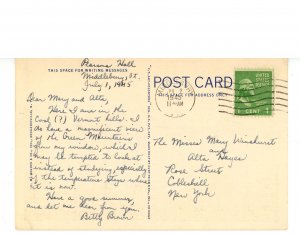 Parsons Hall
THIS SPACE FOR WRITING MESSAGES
Middlebury, Vt.
July 1, 1945
Dear Mary and Alta,
Here I am in the
Cool (?) Vermont hills. I
do have a magnificent view
of the Green Mountains
from my window, which I
may be tempted to look at
instead of studying, especially
if the temperature stays where
it is now.
Have a good summer,
and let me hear from you.
Betty
POST CARD
THIS SPACE FOR ADDRESS ONLY
11 AM
UNITED STATES
POSTAGE
1 CENT 1
The Misses Mary
and
Alta
Street
Cobleskill
New York